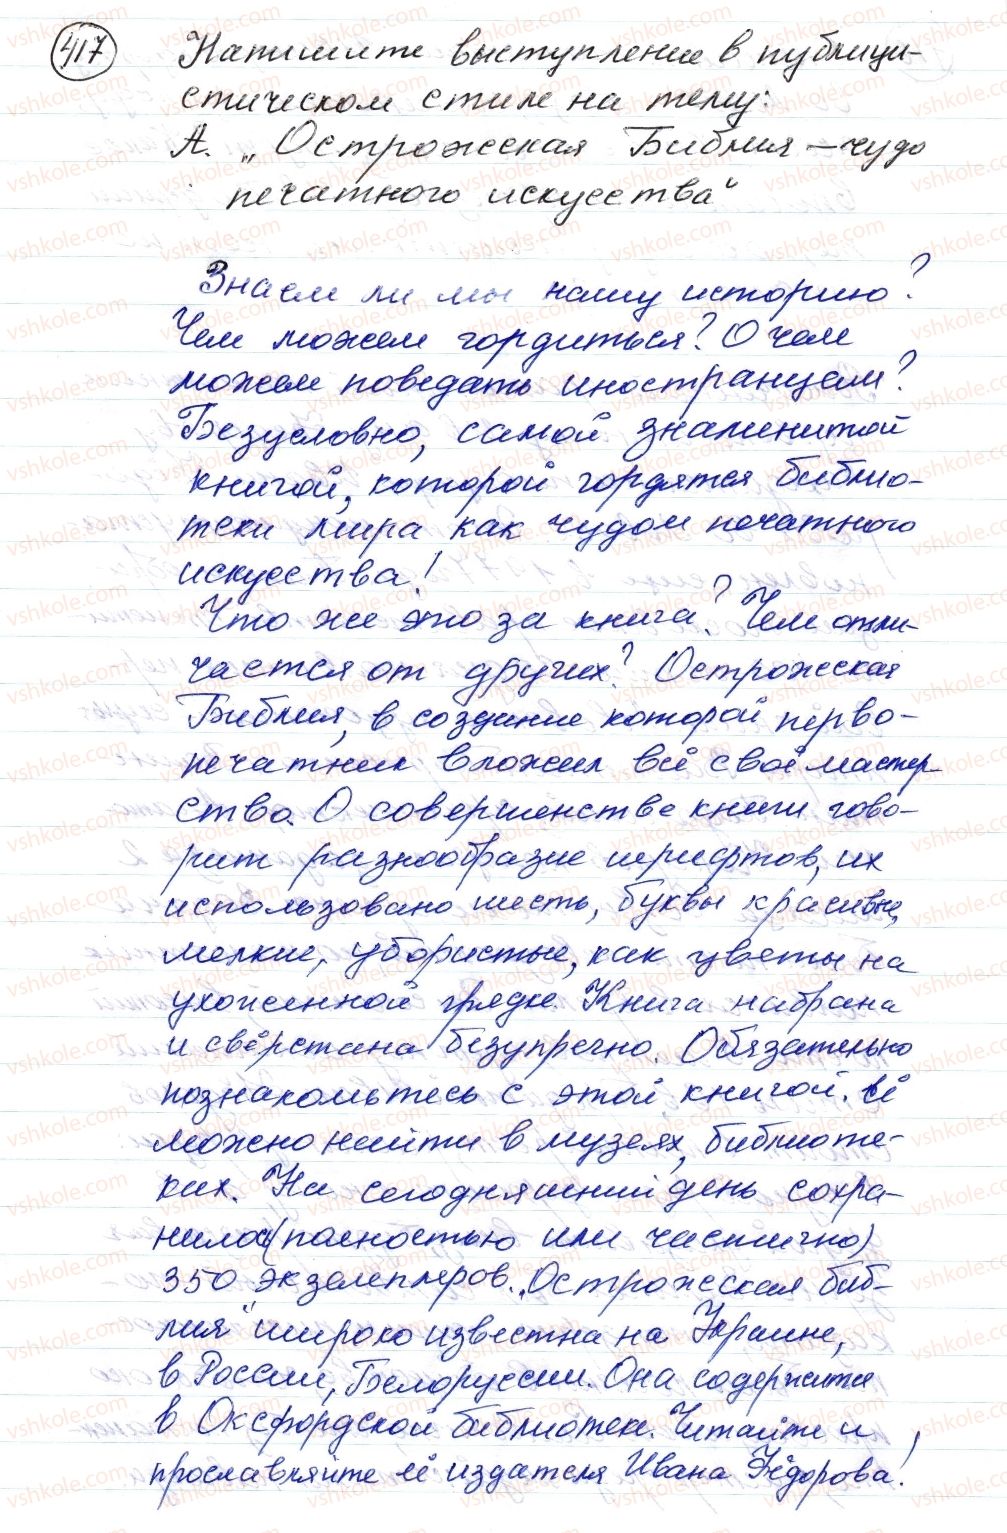 417 Напишите выступление в публици-
стическом стиле на тему:
А. „Острожская Библия – чудо
печатного искусства"
Знаем ли мы нашу историю?
Чем можем гордиться? О чем
можем поведать иностранцам?
Безусловно, самой знаменитой
книгой, которой гордятся библио-
теки мира как чудом печатного
искусства!
Что же это за книга? Чем отли-
чается от других? Острожская
Библия, в создание которой перво-
печатник вложил всё своё мастер-
ство. О совершенстве книги гово-
рит разнообразие шрифтов, их
использовано шесть, буквы красивые,
мелкие, убористые, как цветы на
ухоженной грядке. Книга набрана
и свёрстана безупречно. Обязательно
познакомьтесь с этой книгой. Её
можно найти в музеях, библиоте-
ках. На сегодняшний день сохра-
нилось (полностью или частично)
350 экземпляров. „Острожская биб-
лия" широко известна на Украине,
в России, Белоруссии. Она содержится
в Оксфордской библиотеке. Читайте и
прославляйте её издателя Ивана Фёдорова!